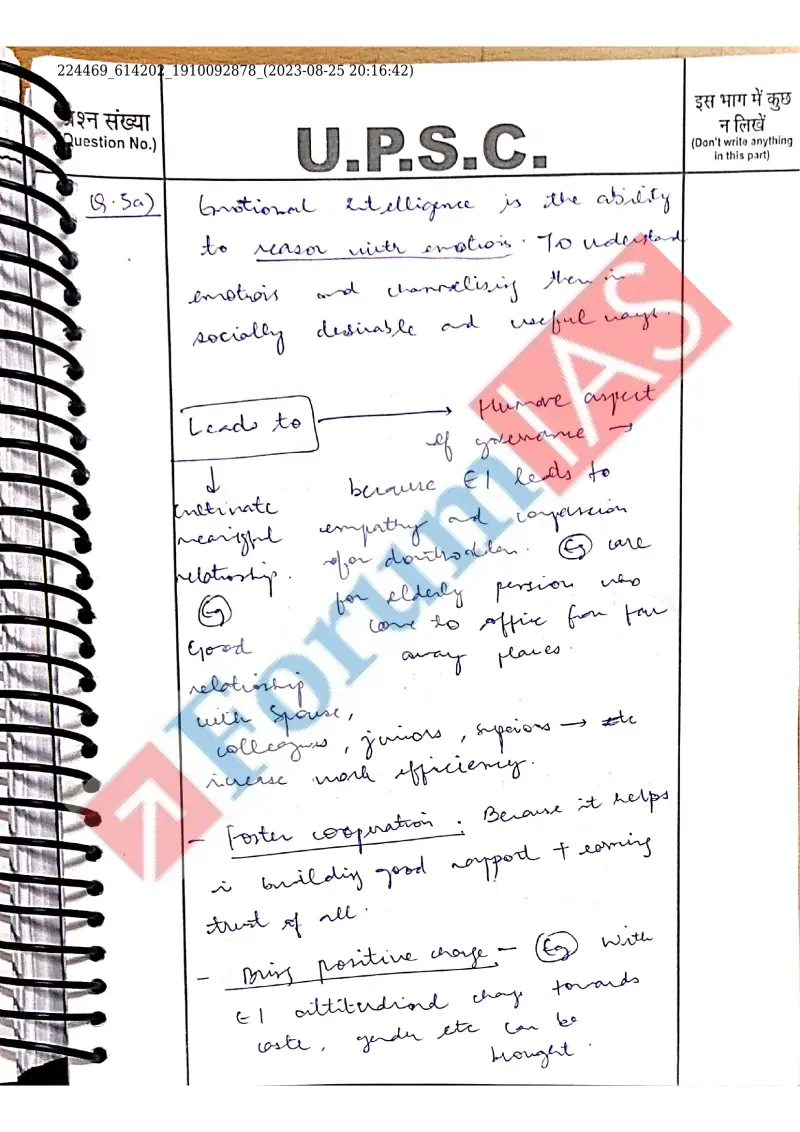 224469_614202_1910092878_(2023-08-25 20:16:42)
प्रश्न संख्या
(Question No.)
U.P.S.C.
इस भाग में कुछ
न लिखें
(Don't write anything
in this part)
Q.5a)
Emotional Intelligence is the ability
to reason with emotions. To understand
emotions and channelising them in
socially desirable and useful ways.
Leads to
Humane aspect
of governance →
because EI leads to
empathy and compassion
for downtrodden. Eg care
for elderly person who
come to office from far
away places.
cultivate
meaningful
relationship.
Eg
Good
relationship
with spouse,
colleagues, juniors, superiors → etc
increase work efficiency.
- Foster cooperation. Because it helps
in building good rapport + earning
trust of all.
- Bring positive change - Eg With
EI attitudinal change towards
caste, gender etc can be
brought.
ForumIAS